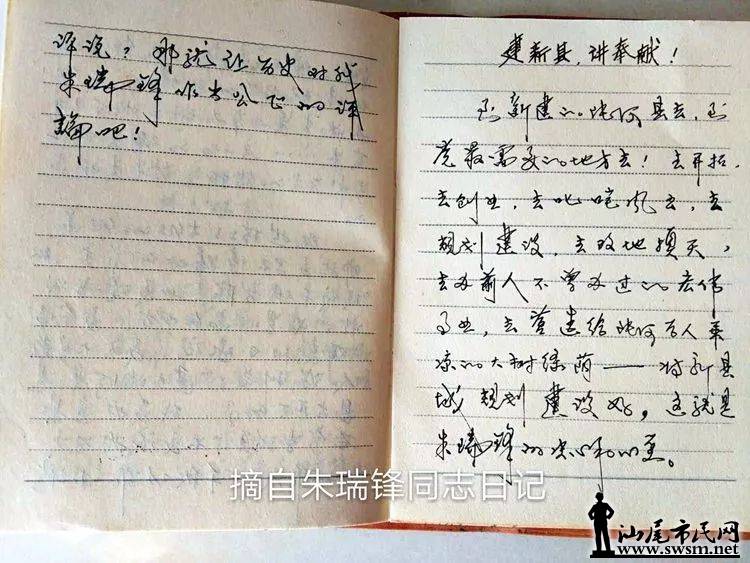 评说？那就让历史对我
朱瑞锋作出公正的评
论吧！
建新县，讲奉献！
到新建的陆河县去，到
党最需要的地方去！去开拓、
去创业，去叱咤风云，去
规划建设，去改地换天，
去办前人不曾办过的宏伟
事业，去营造给陆河百人乘
凉的大树绿荫——将新县
城规划建设好，这就是
朱瑞锋的决心和心愿。
摘自朱瑞锋同志日记
汕尾市民网
www.swsm.net